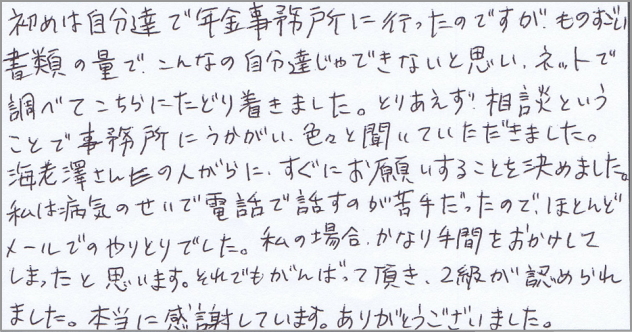 初めは自分達で年金事務所に行ったのですが、ものすごい
書類の量で、こんなの自分達じゃできないと思い、ネットで
調べてこちらにたどり着きました。とりあえず、相談という
ことで事務所にうかがい、色々と聞いていただきました。
海老澤さんの人がらに、すぐにお願いすることを決めました。
私は病気のせいで電話で話すのが苦手だったので、ほとんど
メールでのやりとりでした。私の場合、かなり手間をおかけして
しまったと思います。それでもがんばって頂き、2級が認められ
ました。本当に感謝しています。ありがとうございました。